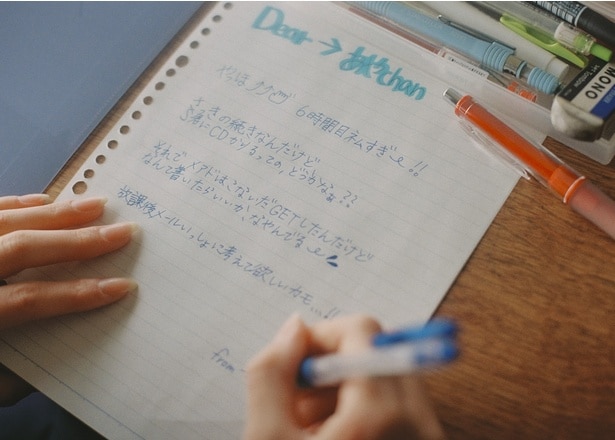 Dear→あやchan
やほ 6時間目ネムすぎ〜!!
さっきの続きなんだけど
S君にCDかりるっての、どうかなぁ??
それで メアドはこないだGETしたんだけど
なんて書いたらいいか、なやんでる〜
放課後メールいっしょに考えて欲しいカモ…!!
from→
MONO